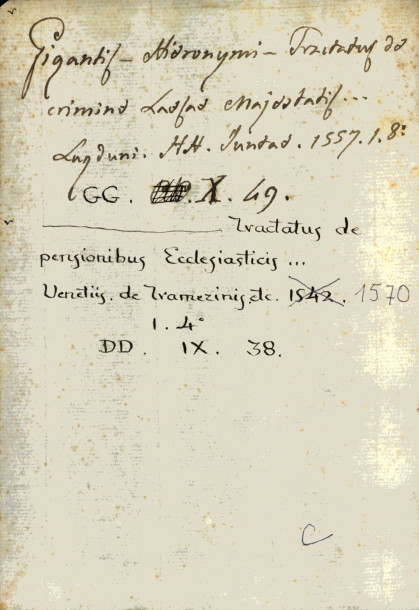 Gigantis - Hieronymi - Tractatus de
crimine Laesae Majestatis...
Lugduni. HH. Juntae. 1557. 1. 8º
GG. X. 49.
Tractatus de
pensionibus Ecclesiasticis ...
Venetiis. de Tramezinis, etc. 1542. 1570
1. 4º
DD. IX. 38.
C